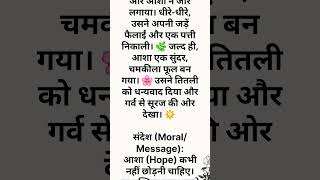 और आशा ने जोर
लगाया। धीरे-धीरे,
उसने अपनी जड़ें
फैलाईं और एक पत्ती
निकाली। 🌿 जल्द ही,
आशा एक सुंदर,
चमकीला फूल बन
गया। 🌸 उसने तितली
को धन्यवाद दिया और
गर्व से सूरज की ओर
देखा। ☀️
संदेश (Moral/
Message):
आशा (Hope) कभी
नहीं छोड़नी चाहिए।